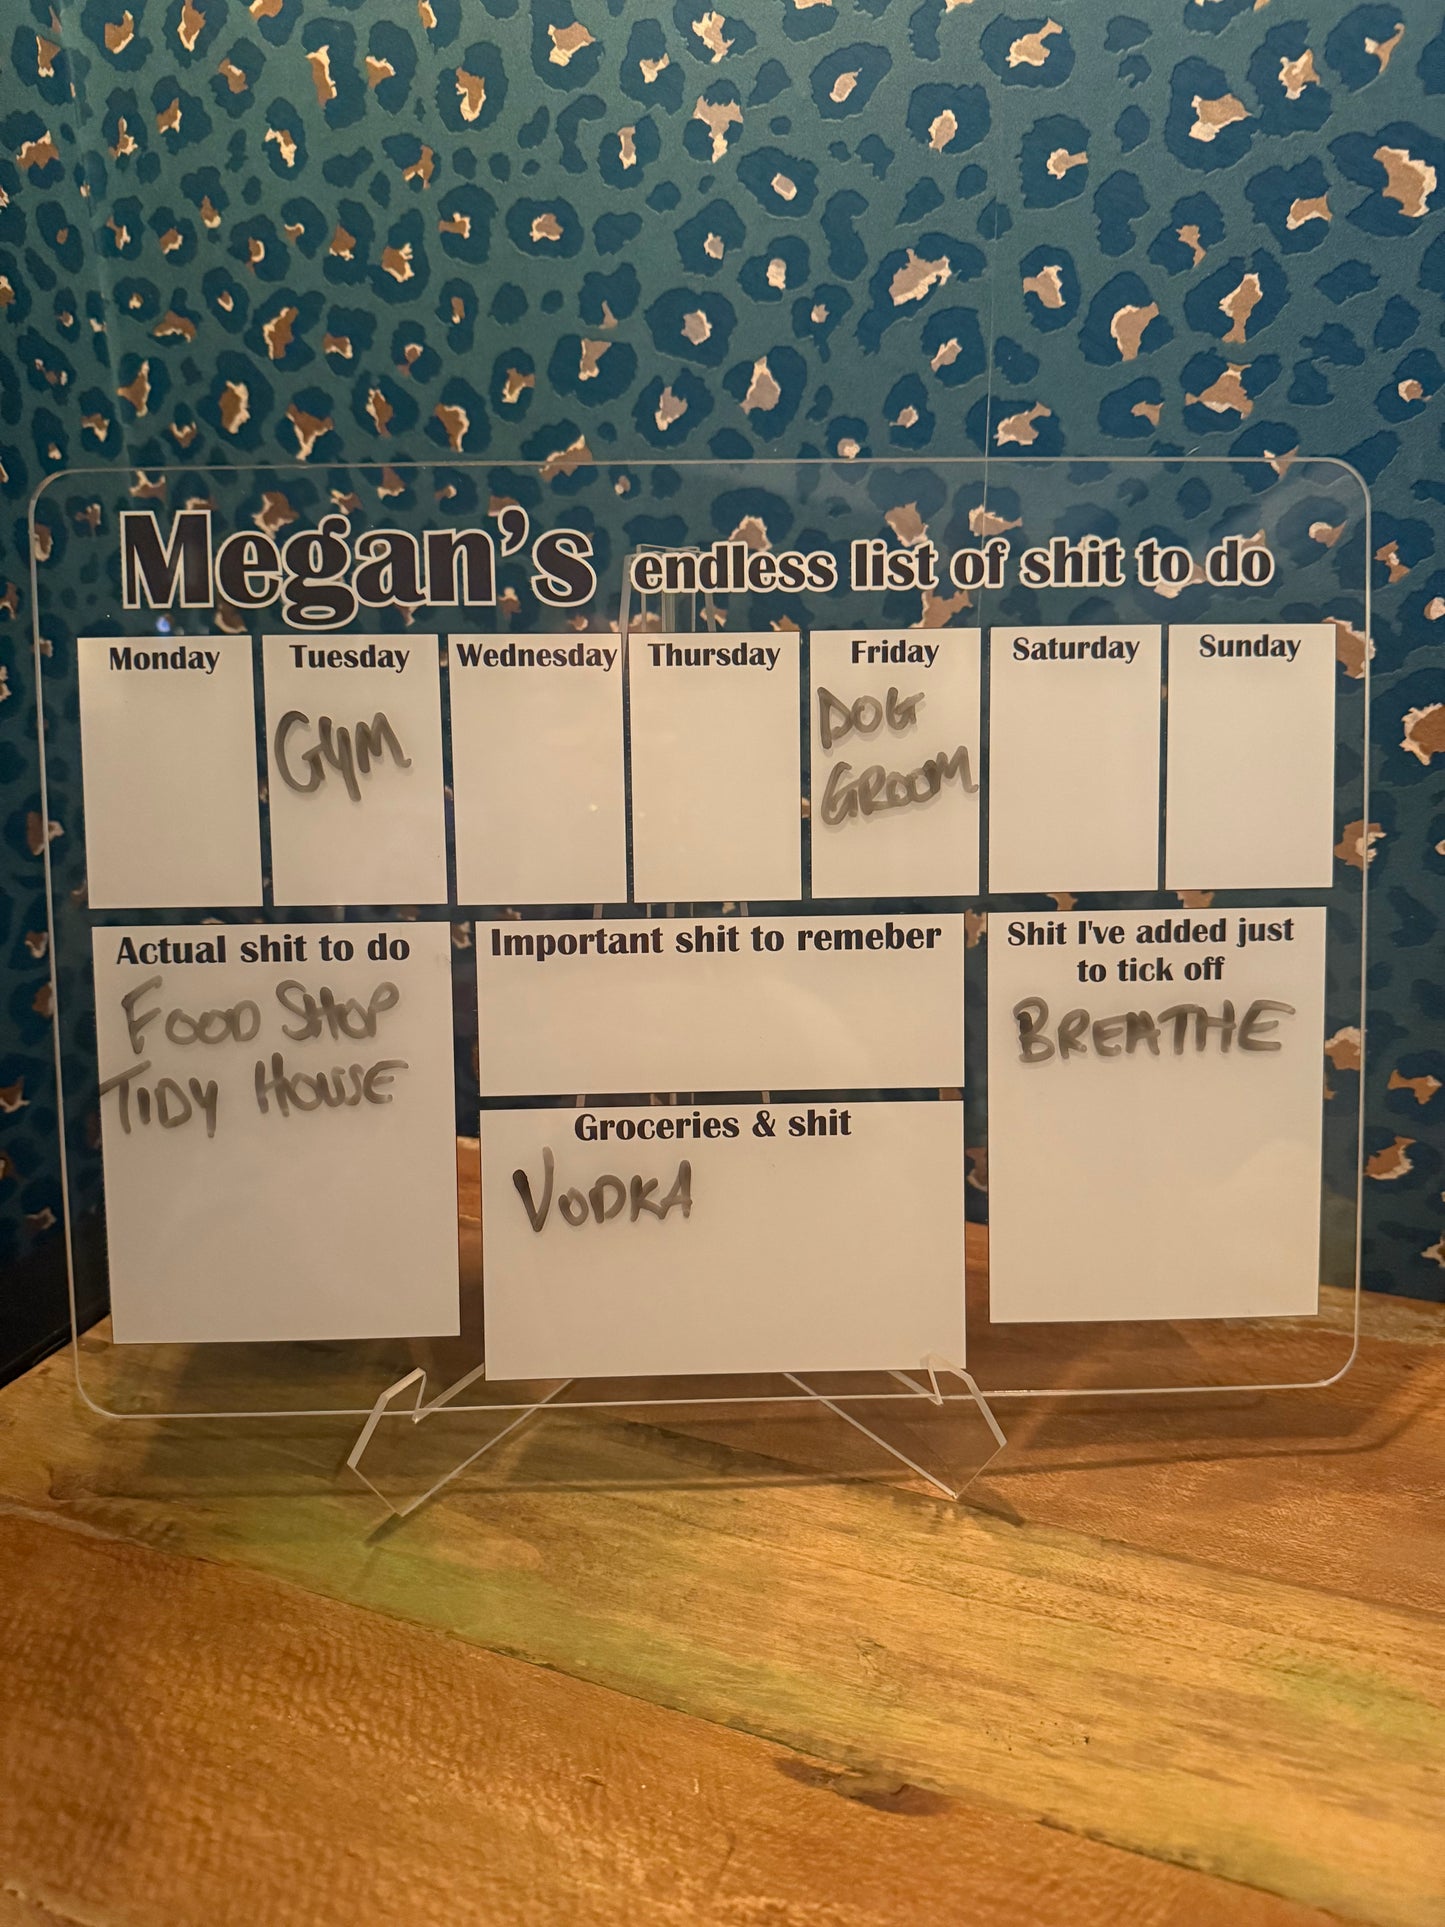 Megan's endless list of shit to do
Monday Tuesday Wednesday Thursday Friday Saturday Sunday
GYM
DOG
GROOM
Actual shit to do
FOOD SHOP
TIDY HOUSE
Important shit to remeber
Groceries & shit
VODKA
Shit I've added just
to tick off
BREATHE